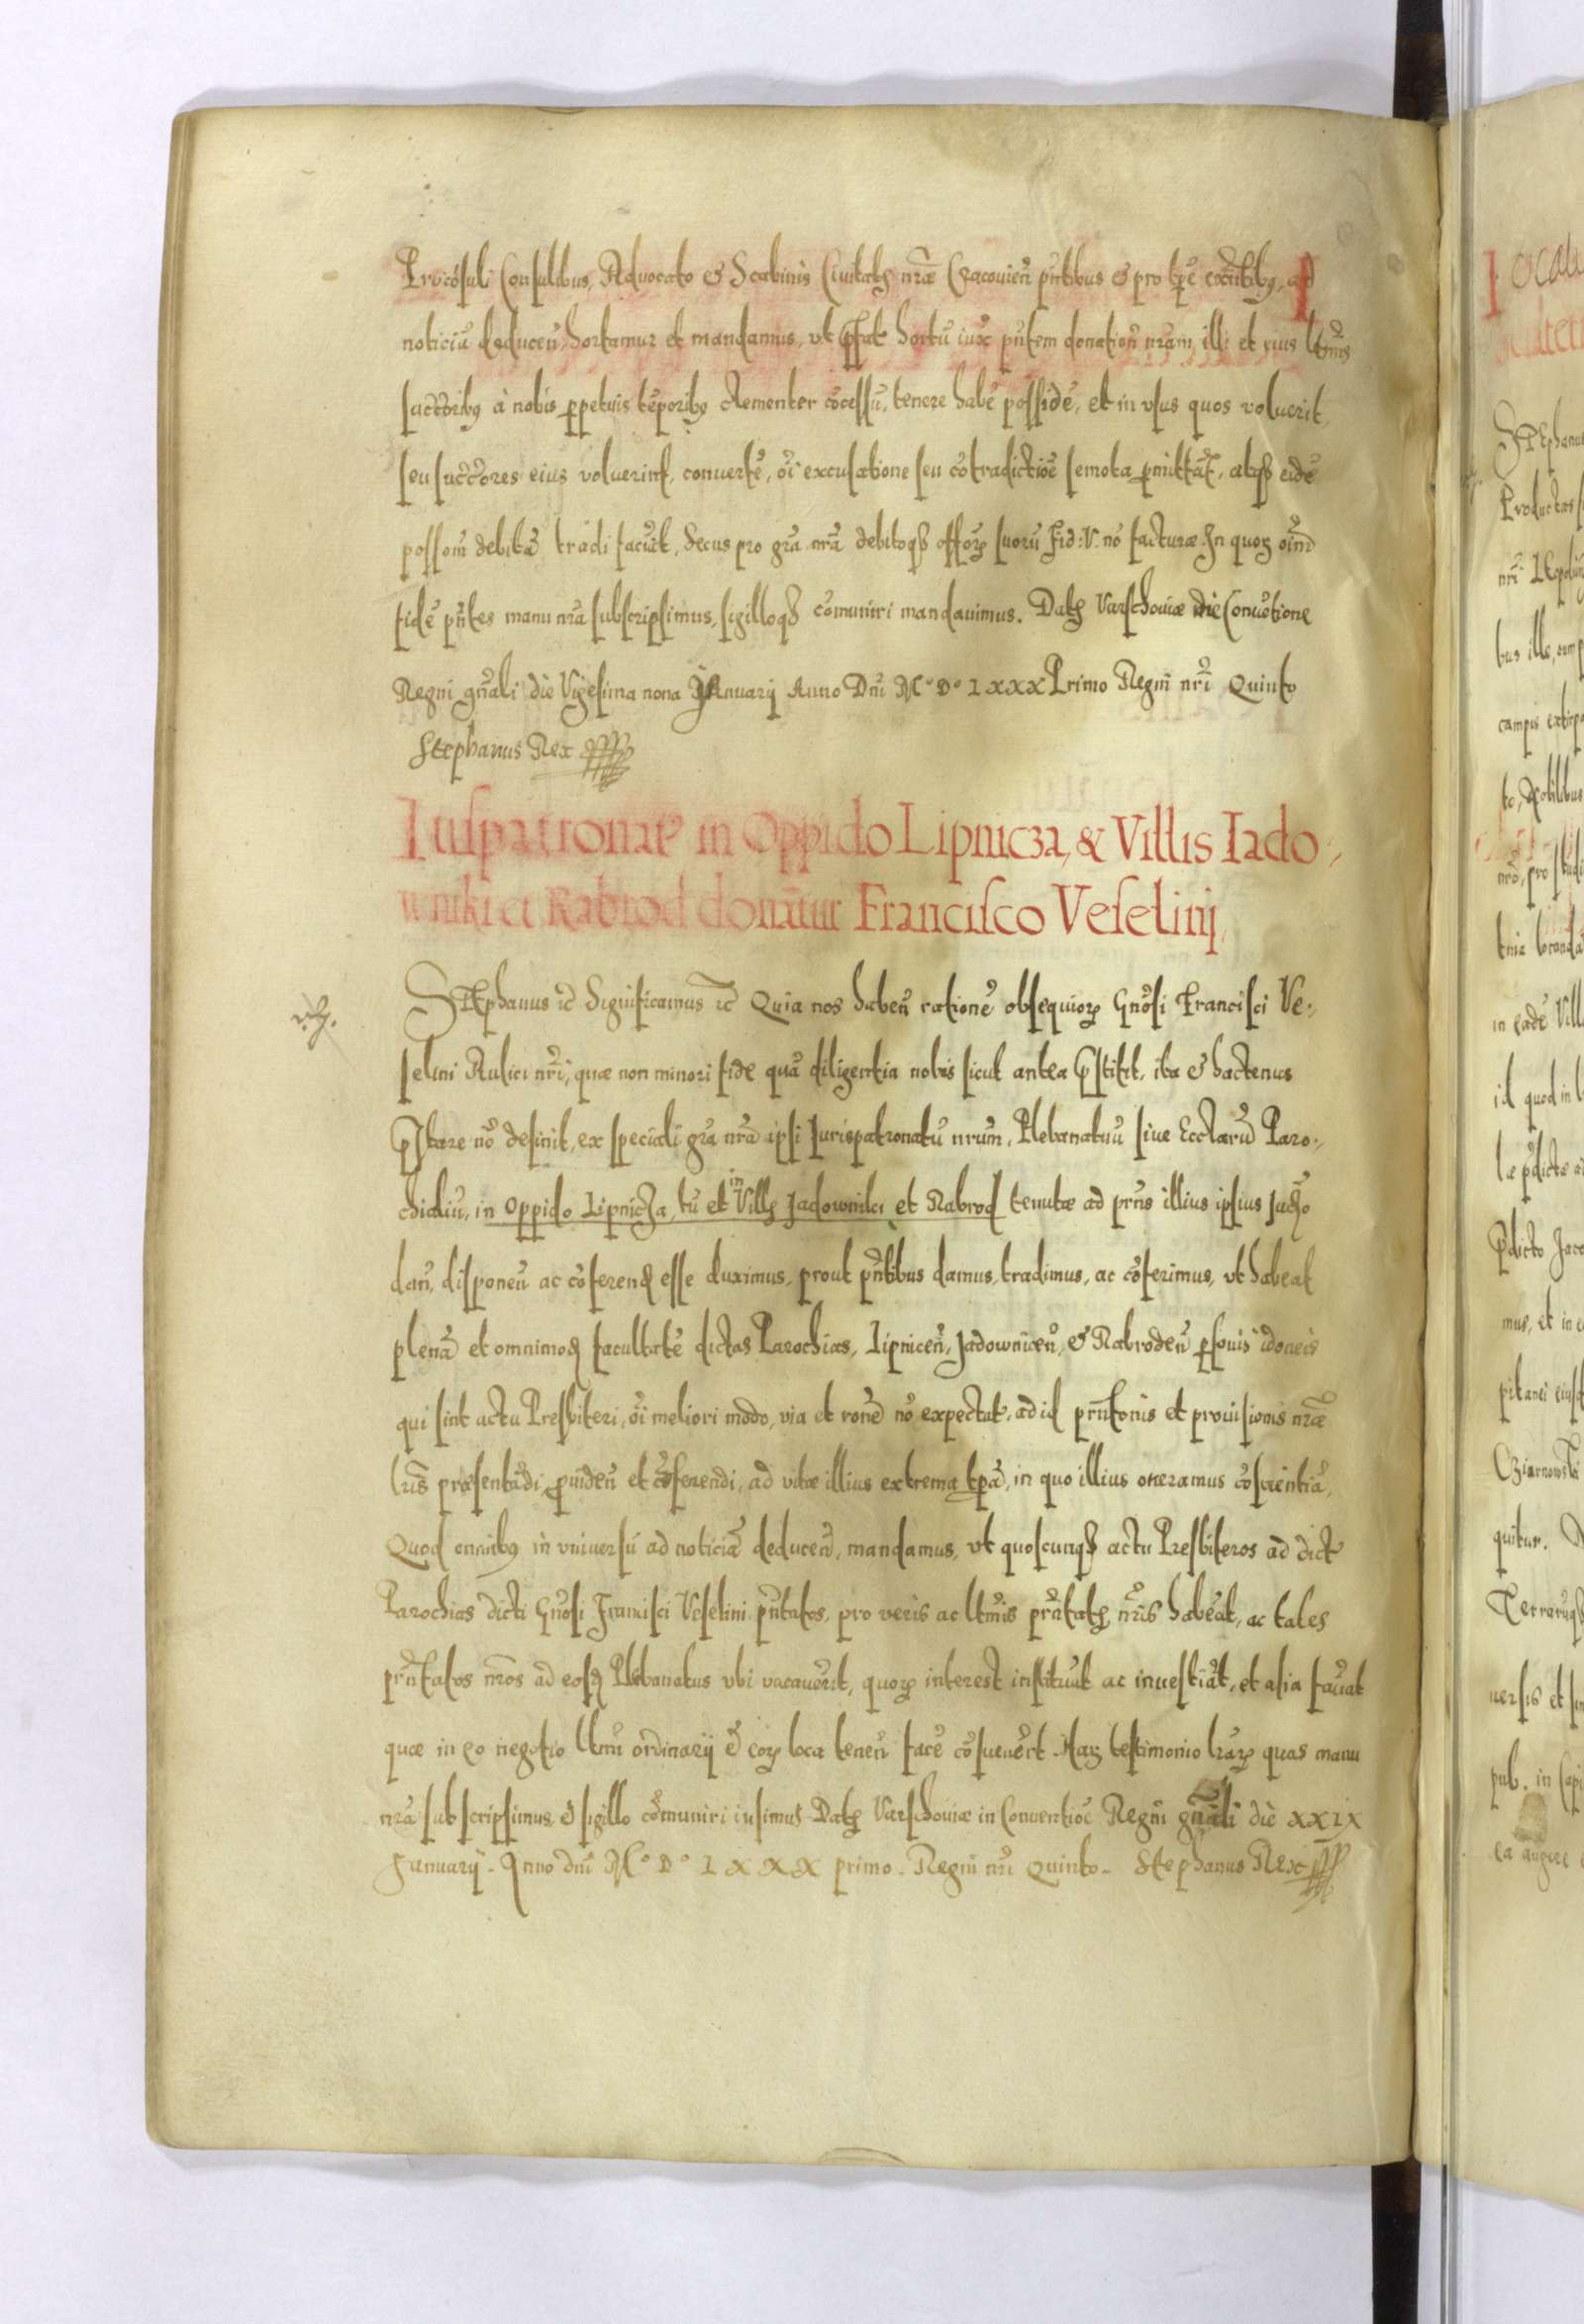 Procõsuli Consulibus, Aduocato & Scabinis Ciuitatis nr̃æ Cracouieñ pñtibus & pro tp̃e exñtibus, ad
noticiã deduceñ, hortamur et mandamus, vt p̃fat hortũ iux pñtem donationẽ nrãm, illi et eius ltm̃is
succr̃ibus à nobis ꝑpetuis tẽporibus clementer cõcessũ, tenere habẽ possidẽ, et in vsus quos voluerit,
seu succẽores eius voluerint, conuertẽ, oĩ excusatione seu cõtradictiõe semota ꝑmittãt, atqꝫ eidẽ
possom̃ debitã tradi faciãt, Secus pro gr̃a nr̃a debitoqꝫ offorꝝ suorũ Fid: V: nõ facturæ. In quoꝝ oĩm
fidẽ pñtes manu nr̃a subscripsimus, sigilloqꝫ cõmuniri mandauimus. Datꝫ Varschouiæ in Conuẽtione
Regni gñali die Vigesima nona Januarij Anno Dni M° D° LXXX Primo Regni nr̃i Quinto
Stephanus Rex
Iuspatronatꝰ in Oppido Lipnicza, & Villis Iado⸗
wniki et Rabrod donãtur Francisco Veselinj,
STEphanus ꝛc̃ Significamus ꝛc̃ Quia nos habeñ rationẽ obsequiorꝝ Gñosi Francisci Ve⸗
selini Aulici nr̃i, quæ non minori fide quã diligentia nobis sicut antea p̃stitit, ita & hactenus
p̃stare nõ desinit, ex speciali gr̃a nr̃a ipsi Iurispatronatũ nrum, Plebanatuũ siue Eccl̃arũ Paro⸗
chialiũ, in Oppido Lipnicza, tũ et in Villꝫ Jadowniki et Rabrod tenutæ ad pr̃ns illius ipsius
dañ, disponeñ ac cõferendꝫ esse duximus, prout pñtibus damus, tradimus, ac cõferimus, vt habeat
plenã et omnimodꝫ facultatẽ dictas Parochias, Lipniceñ, Jadowniceñ, & Rabrodeñ ꝑsonis idoneis
qui sint actu Presbiteri, oĩ meliori modo, via et rone nõ expectat, ad id prñtonis et prouisionis nr̃æ
lris præsentãdi ꝓuideñ et cõferendi, ad vitæ illius extrema tp̃a, in quo illius oneramus cõscientiã,
Quod omnibus in vniuersũ ad noticiã deduceñ, mandamus, vt quoscunqꝫ actu Presbiteros ad dict
Parochias dicti Gñosi Francisci Veselini pñtatos, pro veris ac ltm̃is prñtatꝫ nr̃is habeãt, ac tales
prñtatos nr̃os ad eosdꝫ Plebanatus vbi vacauerĩt, quorꝝ interest instituãt ac inuestiãt, et alia faciãt
quæ in eo negotio ltm̃i ordinarij & eorꝝ loca teneñ facẽ cõsueuert. Harꝫ testimonio lrarꝝ quas manu
nr̃a subscripsimus & sigillo cõmuniri iusimus Datꝫ Varschouiæ in Conuentioẽ Regni gñali die XXIX
Januarij. Anno dni M° D° LXXX primo. Regni nr̃i Quinto. Stephanus Rex